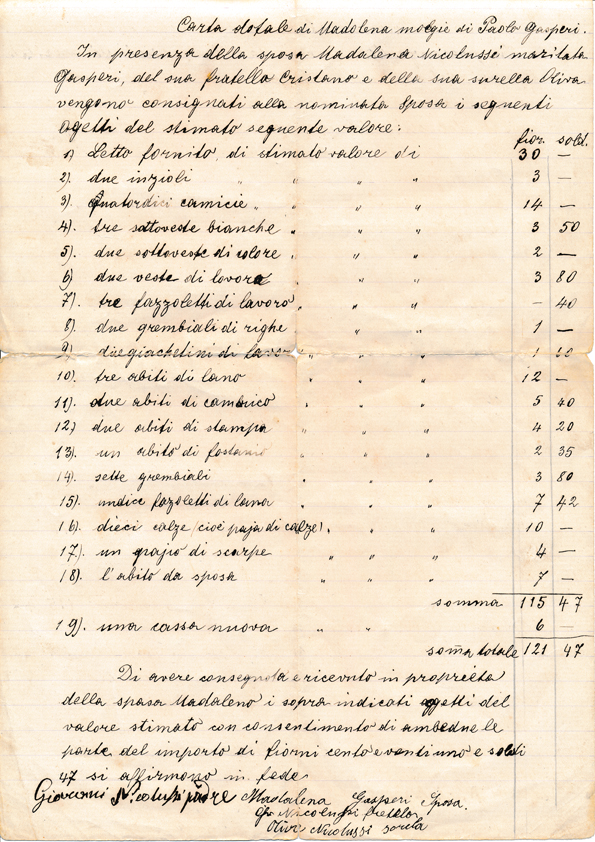 Carta dotale di Madolena molgie di Paolo Gasperi.
In presenza della sposa Madalena Nicolussi maritata
Gasperi, del sua fratello Cristano e della sua surella Oliva
vengono consignati alla nominata Sposa i seguenti
ogetti del stimato seguente valore:
fior. sold.
1) Letto fornito, di stimato valore di 30 —
2). due inzioli " " " 3 —
3). Quatordici camicie " " " 14 —
4). tre sottoveste bianche " " " 3 50
5). due sottoveste di colore " " " 2 —
6) due veste di lavora " " " 3 80
7). tre fazzoletti di lavoro " " " – 40
8). due grembiali di righe " " 1 —
9). due giachetini di " " " 1
10). tre abiti di lano " " " 12 —
11). due abiti di cambrico " " " 5 40
12) due abiti di stampa " " " 4 20
13). un abito di fostano " " " 2 35
14). sette grembiali " " " 3 80
15). undice fazoletti di lana " " " 7 42
16). dieci calze (cioè paja di calze) " " " 10 —
17). un pajio di scarpe " " " 4 —
18). l'abito da sposa " " " 7 —
somma 115 47
19). una cassa nuova " " 6 —
soma totale 121 47
Di avere consegnota e ricevuto in proprieta
della spasa Madaleno i sopra indicati oggetti del
valore stimato con consentimento di ambedue le
parte del importo di fiorni cento e venti uno e soldi
47 si affirmono in fede
Giovanni Nicolussi padre Madalena Gasperi Sposa.
Nicolussi fretelo
Olivi Nicolussi sorela